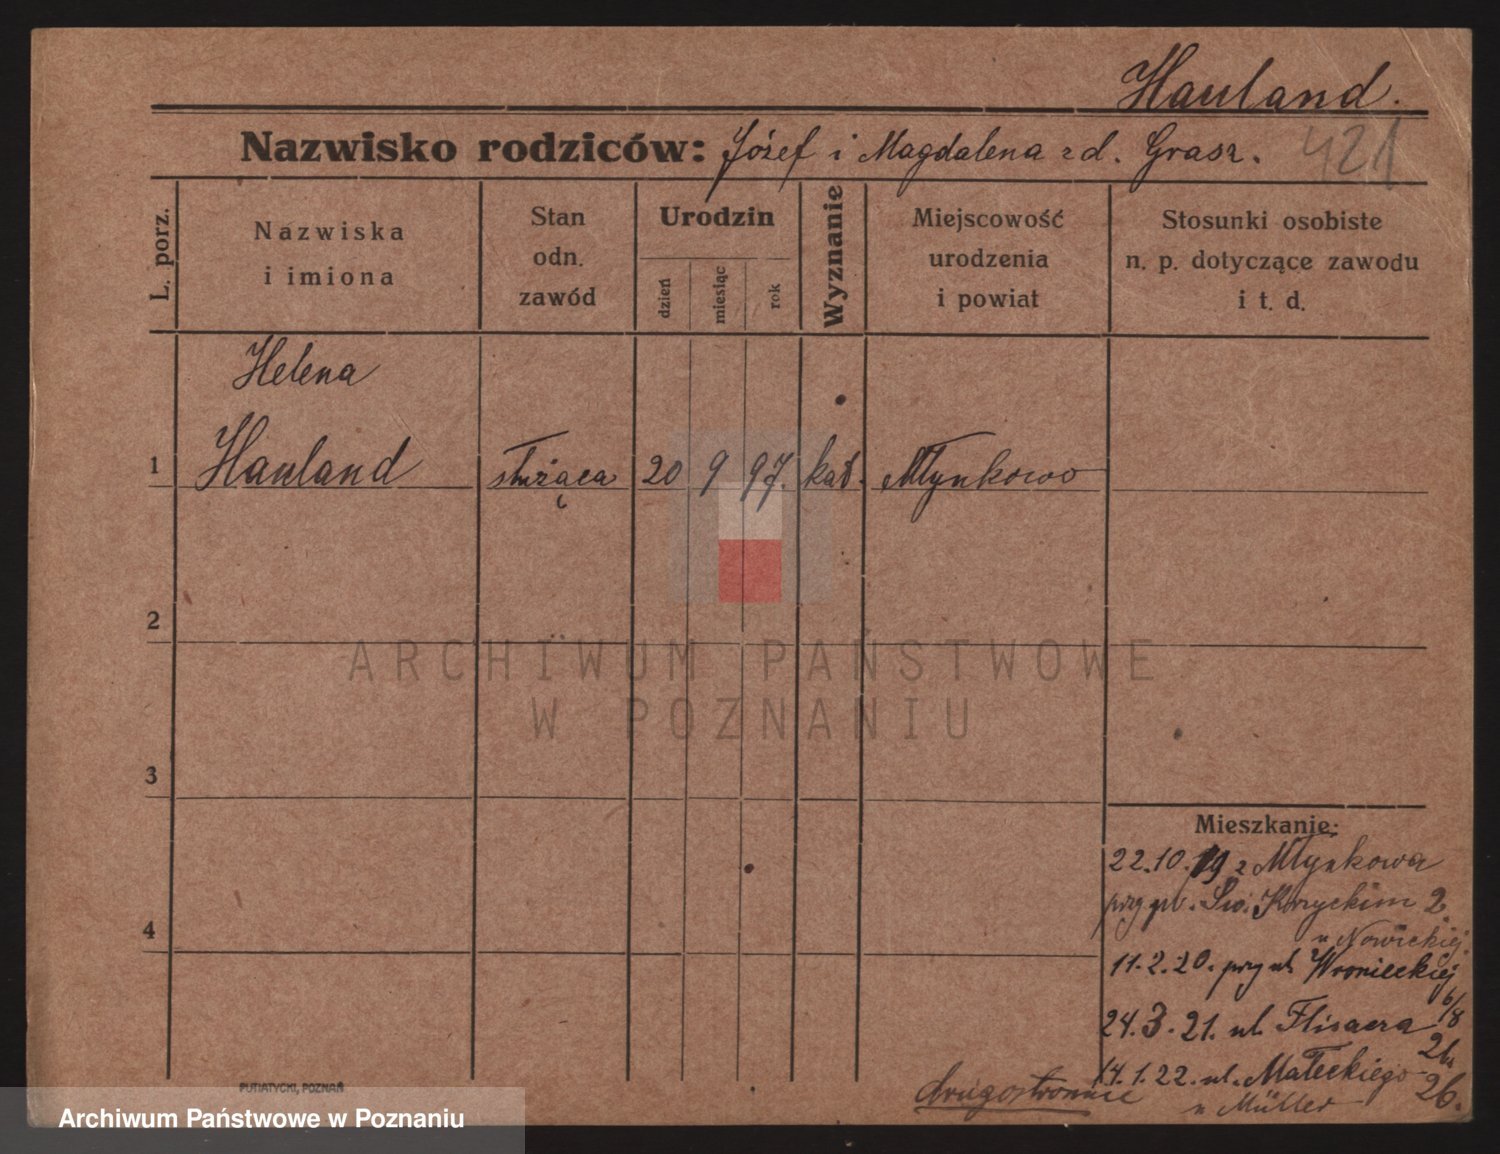 Hauland.
Nazwisko rodziców: Józef i Magdalena zd. Grasz.
421
L. porz.
Nazwiska
i imiona
Stan
odn.
zawód
Urodzin
dzień
miesiąc
rok
Wyznanie
Miejscowość
urodzenia
i powiat
Stosunki osobiste
n. p. dotyczące zawodu
i t. d.
Helena
1 Hauland służąca 20 9 97. kat. Młynkowo
2
ARCHIWUM PAŃSTWOWE
W POZNANIU
3
Mieszkanie:
22.10.19 z Młynkowa
przy pl. Św. 2
u Nowickiej
4
11.2.20. przy ul. Wronieckiej
6/8
24.3.21. ul. Flisacza
2b.
14.1.22. ul. Małeckiego
26.
u Müller
drugostronnie
PUTIATYCKI, POZNAŃ
Archiwum Państwowe w Poznaniu